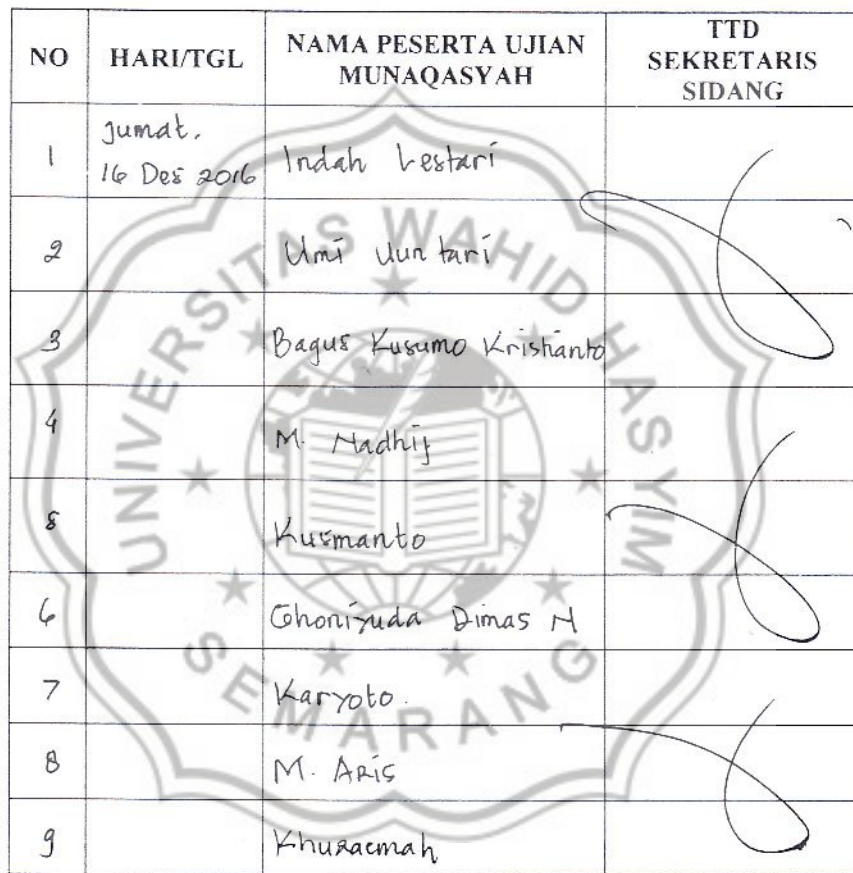 NO HARI/TGL NAMA PESERTA UJIAN MUNAQASYAH TTD SEKRETARIS SIDANG
1 Jumat, 16 Des 2016 Indah Lestari
2 Umi Yuntari
3 Bagus Kusumo Kristianto
4 M. Nadhij
5 Kusmanto
6 Ghonizuda Dimas N
7 Karyoto.
8 M. Aris
9 Khuraemah
UNIVERSITAS WAHID HASYIM
SEMARANG